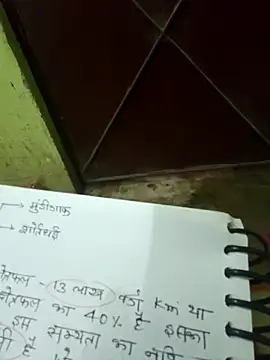 → मुंडीगाक
→ शोर्तुघई
क्षेत्रफल - 13 लाख वर्ग Km था
क्षेत्रफल का 40% है इसका
इस सभ्यता का
है